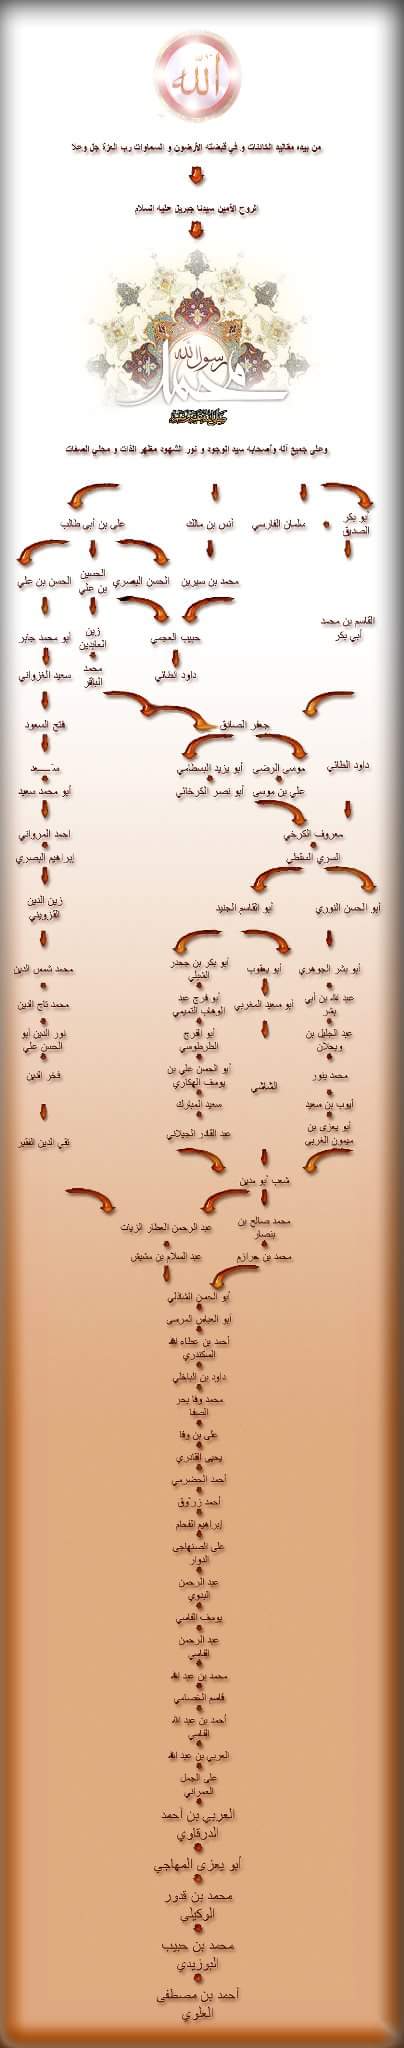 الله
من بيده مقاليد الكائنات و في قبضته الأرضون و السماوات رب العزة جل وعلا
الروح الأمين سيدنا جبريل عليه السلام
محمد رسول الله
وعلى جميع آله وأصحابه سيد الوجود و نور الشهود مظهر الذات و مجلي الصفات
أبو بكر
الصديق
سلمان الفارسي
أنس بن مالك
علي بن أبي طالب
محمد بن سيرين
الحسن البصري
الحسين
بن علي
الحسن بن علي
القاسم بن محمد
أبي بكر
حبيب العجمي
زين
العابدين
أبو محمد جابر
داود الطائي
محمد
الباقر
سعيد الغزواني
جعفر الصادق
فتح السعود
داود الطائي
موسى الرضى
أبو يزيد البسطامي
سعد
علي بن موسى
أبو نصر الكرخاتي
أبو محمد سعيد
معروف الكرخي
احمد المرواني
السري السقطي
إبراهيم البصري
أبو الحسن النوري
أبو القاسم الجنيد
زين الدين
القزويني
أبو بشر الجوهري
أبو يعقوب
أبو بكر بن جحدر
الشبلي
محمد شمس الدين
عبد الله بن أبي
بشر
أبو سعيد المغربي
أبو فرج عبد
الوهاب التميمي
محمد تاج الدين
عبد الجليل بن
ويحلان
أبو الفرج
الطرطوسي
نور الدين أبو
الحسن علي
محمد بنور
الشاشي
أبو الحسن علي بن
يوسف الهكاري
فخر الدين
أيوب بن سعيد
سعيد المبارك
أبو يعزى بن
ميمون الغربي
عبد القادر الجيلاني
تقي الدين الفقير
شعيب أبو مدين
محمد صالح بن
بنصار
عبد الرحمن العطار الزيات
محمد بن حرازم
عبد السلام بن مشيش
أبو الحسن الشاذلي
أبو العباس المرسي
أحمد بن عطاء الله
السكندري
داود بن الباخلي
محمد وفا بحر
الصفا
علي بن وفا
يحيى القادري
أحمد الحضرمي
أحمد زروق
إبراهيم الفحام
علي الصنهاجي
الدوار
عبد الرحمن
المجذوب
يوسف الفاسي
عبد الرحمن
الفاسي
محمد بن عبد الله
قاسم الخصاصي
أحمد بن عبد الله
الفاسي
العربي بن عبد الله
علي الجمل
العمراني
العربي بن أحمد
الدرقاوي
أبو يعزى المهاجي
محمد بن قدور
الوكيلي
محمد بن حبيب
البوزيدي
أحمد بن مصطفى
العلوي